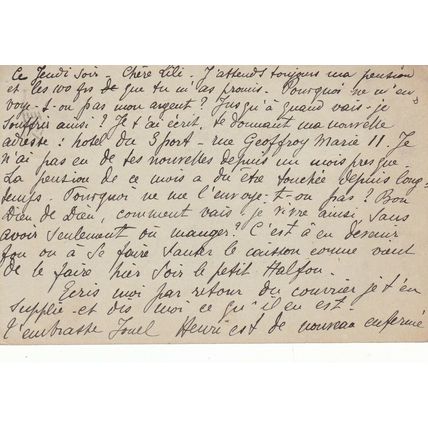 Ce Jeudi soir - Chère Lili. J'attends toujours ma pension
et les 100 frs de que tu m'as promis. Pourquoi ne m'en
voye-t-on pas mon argent? Jusqu'à quand vais-je
souffrir ainsi? Je t'ai écrit, te donnant ma nouvelle
adresse: hotel du Sport - rue Geoffroy Marie 11. Je
n'ai pas eu de tes nouvelles depuis un mois presque.
La pension de ce mois a du être touchée depuis long-
temps. Pourquoi ne me l'envoye-t-on pas? Bon
Dieu de Dieu, comment vais-je vivre ainsi, sans
avoir seulement où manger? C'est à en devenir
fou ou à se faire sauter le caisson comme vient
de le faire hier soir le petit Halfon.
Ecris moi par retour du courrier je t'en
supplie et dis moi ce qu'il en est.
t'embrasse Henri est de nouveau enfermé